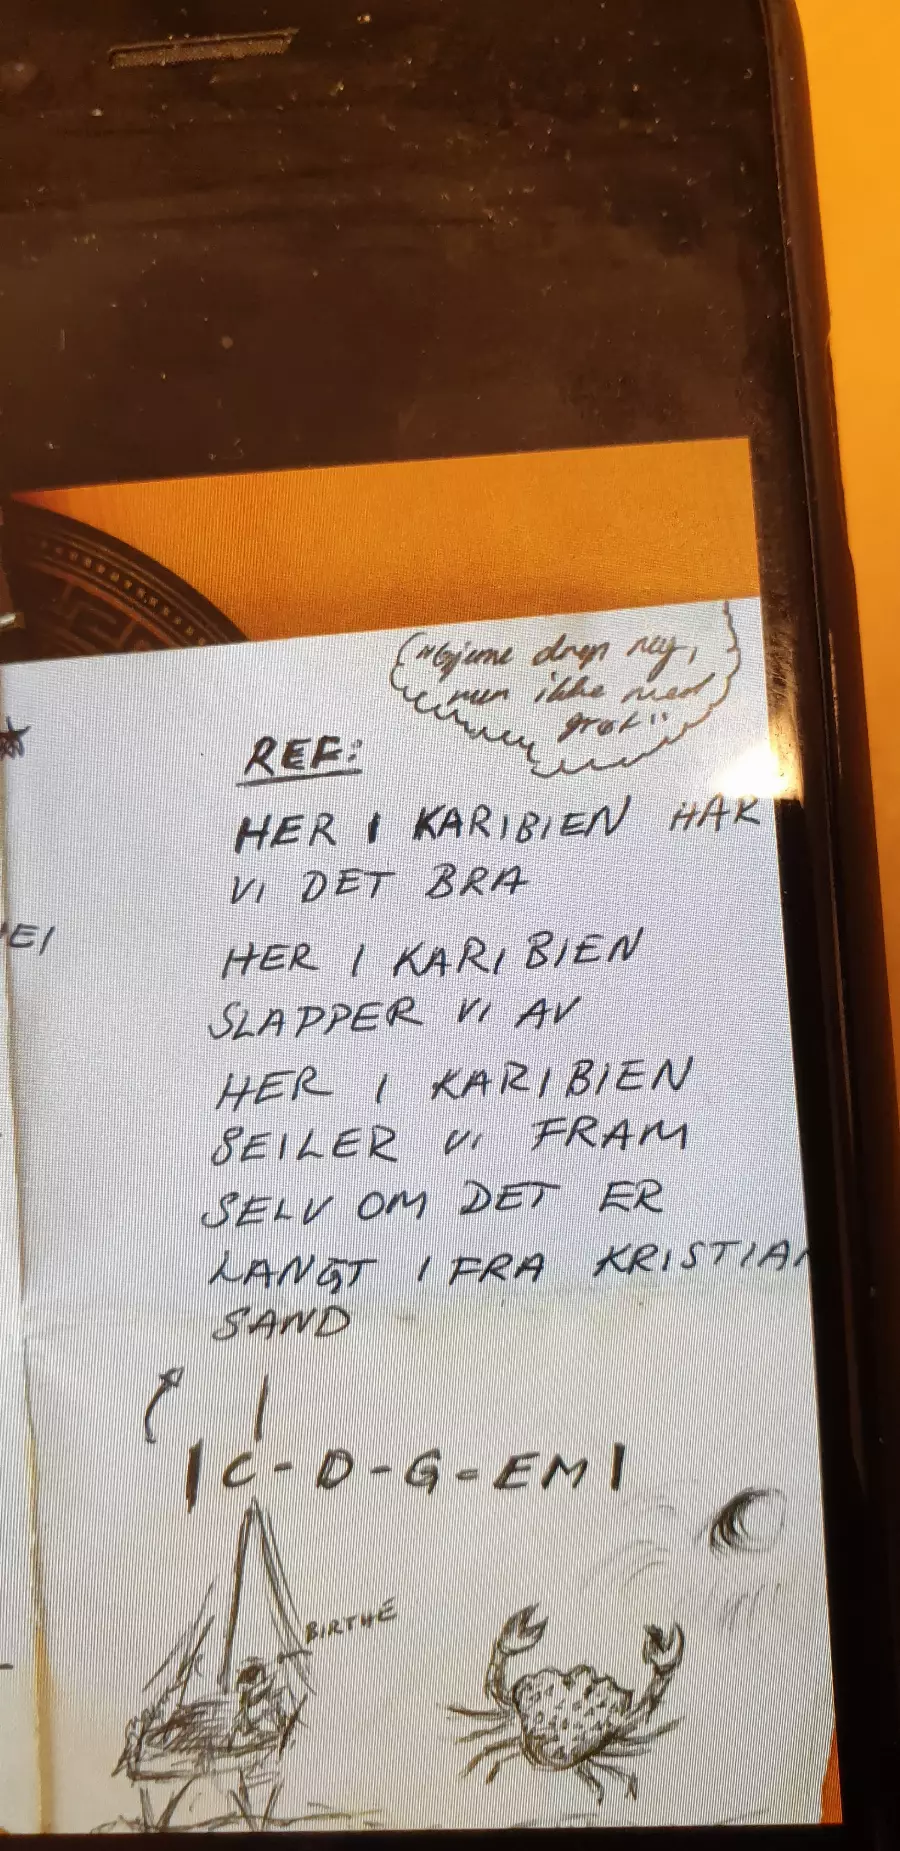 "Gjerne drep meg,
men ikke med
grøt"
REF:
HER I KARIBIEN HAR
VI DET BRA
EI
HER I KARIBIEN
SLAPPER VI AV
HER I KARIBIEN
SEILER VI FRAM
SELV OM DET ER
LANGT I FRA KRISTIAN
SAND
| C - D - G - EM |
BIRTHE